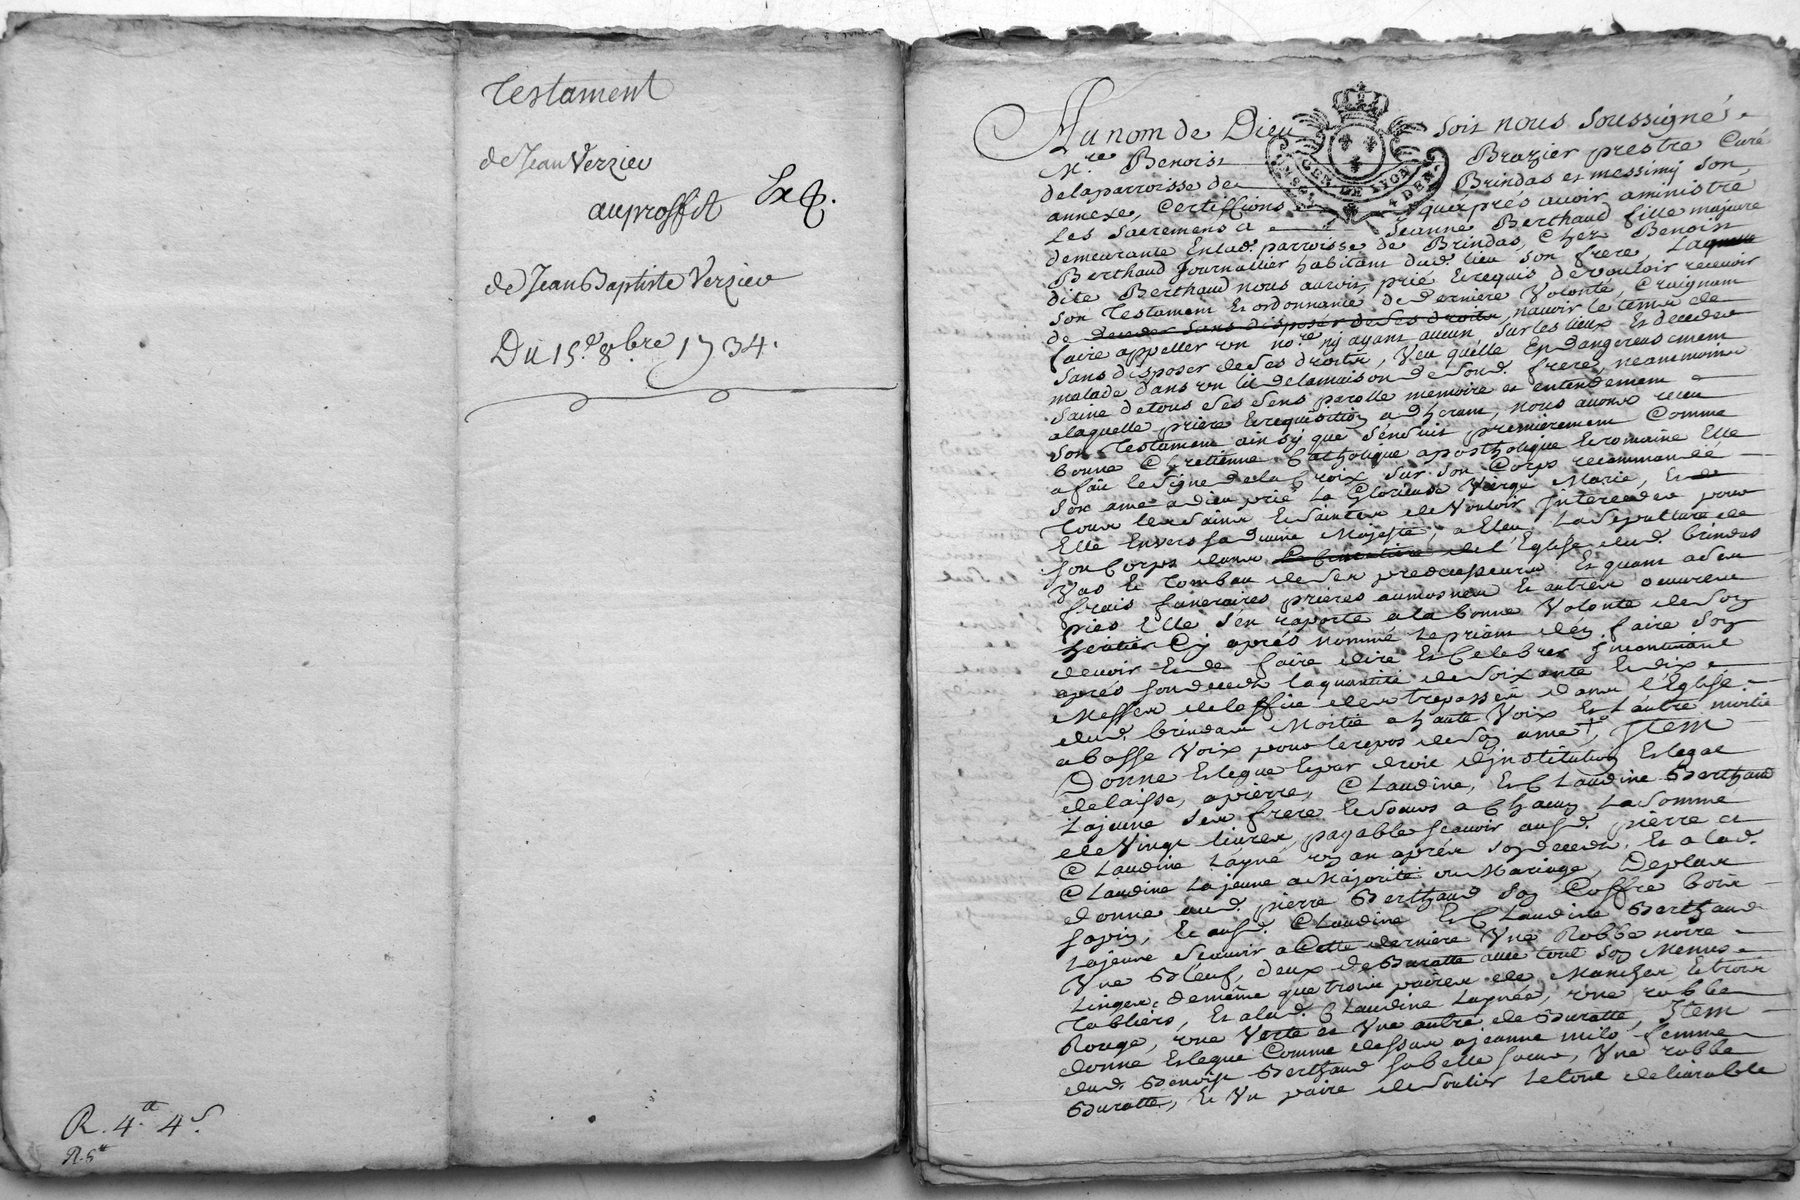 Testament
de Jean Verzieu
au proffit
de Jean Baptiste Verzieu
Du 15.e 8bre 1734.
R. 4.tt 4s.
R. 5tt
Au nom de Dieu soit nous soussigné
Mre. Benoist Brazier prestre Curé
de la parroisse de Brindas et messimy son
annexe, Certiffions qu'apres avoir aministré
Les Sacremens a Jeanne Berthaud fille majeure
demeurante En lad. parroisse de Brindas, Chez Benoist
Berthaud Journallier habitant dud. lieu son frere, Laquelle
dite Berthaud nous auroit prié Et requis de vouloir recevoir
son Testament Et ordonnance de Derniere Volonté, Craignant
de deceder sans disposer de ses droits, n'avoir le tems de
faire appeller un nore. n'y ayant aucun sur les lieux Et deceder
sans disposer de ses droits, Veu qu'elle Est dangereusement
malade dans un lit de la maison de sond. frere, neanmoins
saine de tous ses sens parolle memoire et entendement
a laquelle priere Et requisition adherant, nous avons receu
son Testament ainsy que s'ensuit premierement Comme
bonne Chretienne Catholique apostholique Et romaine Elle
a fait le signe de la Croix sur son Corps recommandé
son ame a dieu prié La Glorieuse Vierge Marie, Et
Tous les saints Et saintes de Vouloir Interceder pour
Elle Envers sa divine Majesté, a Eleu La Sepulture de
son Corps dans le Cimetiere de l'Eglise dud. brindas
Vas Et Tombeau de ses predecesseurs Et quant a ses
frais funeraires prieres aumosnes Et autres oeuvres
pies Elle s'en raporte a la bonne Volonté de son
heritier Cy aprés nommé Le priant d'en faire son
devoir Et de faire dire Et Celebrer Incontinant
aprés son deceds la quantité de Soixante Et dix
Messes de l'office des trepassés dans l'Eglise
dud. brindas Moitié a haute Voix Et l'autre moitié
a basse Voix pour le repos de son ame, Item
Donne Et legue Et par droit d'institution Et legat
delaisse, a pierre, Claudine, Et Claudine Berthaud
Lajeune ses frere Et Soeurs a Chacun La Somme
de Vingt livres, payable scavoir ausd. pierre et
Claudine L'ayné un an aprés son deceds, Et a lad.
Claudine Lajeune a Majorité ou Mariage, De plus
donne aud. pierre Berthaud son Coffre bois
sapin, Et ausd. Claudine Et Claudine Berthaud
Lajeune Scavoir a Cette derniere Une Robbe noire
Une bleuf, deux de Buratte avec tout son Menus
Linges, de même que trois paires de Manches Et trois
Tabliers, Et a lad. Claudine L'aynée, une robbe
Rouge, une Verte et Une autre de Buratte, Item
donne Et legue Comme dessus a jeanne milo femme
dud. Benoist Berthaud sa belle soeur, Une robbe
Buratte, Et Un paire de Soulier Le tout delivrable